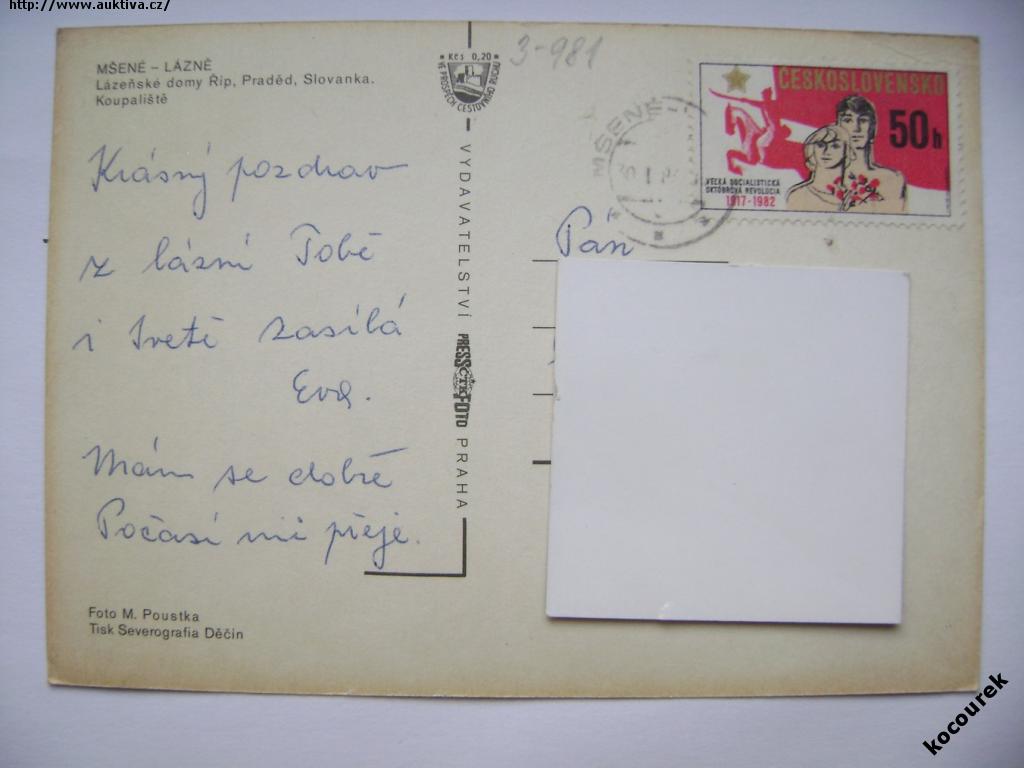 http://www.auktiva.cz/
MŠENÉ – LÁZNĚ
Lázeňské domy Říp, Praděd, Slovanka.
Koupaliště
Krásný pozdrav
z lázní Tobě
i Ivetě zasílá
Eva.
Mám se dobře
Počasí mi přeje.
Foto M. Poustka
Tisk Severografia Děčín
Kčs 0,20
VE PROSPĚCH CESTOVNÍHO RUCHU
VYDAVATELSTVÍ PRESSFOTO PRAHA
ČTK
3-981
MŠENÉ-
ČESKOSLOVENSKO
50h
VEĽKÁ SOCIALISTICKÁ
OKTÓBROVÁ REVOLÚCIA
1917-1982
Pán
kocourek